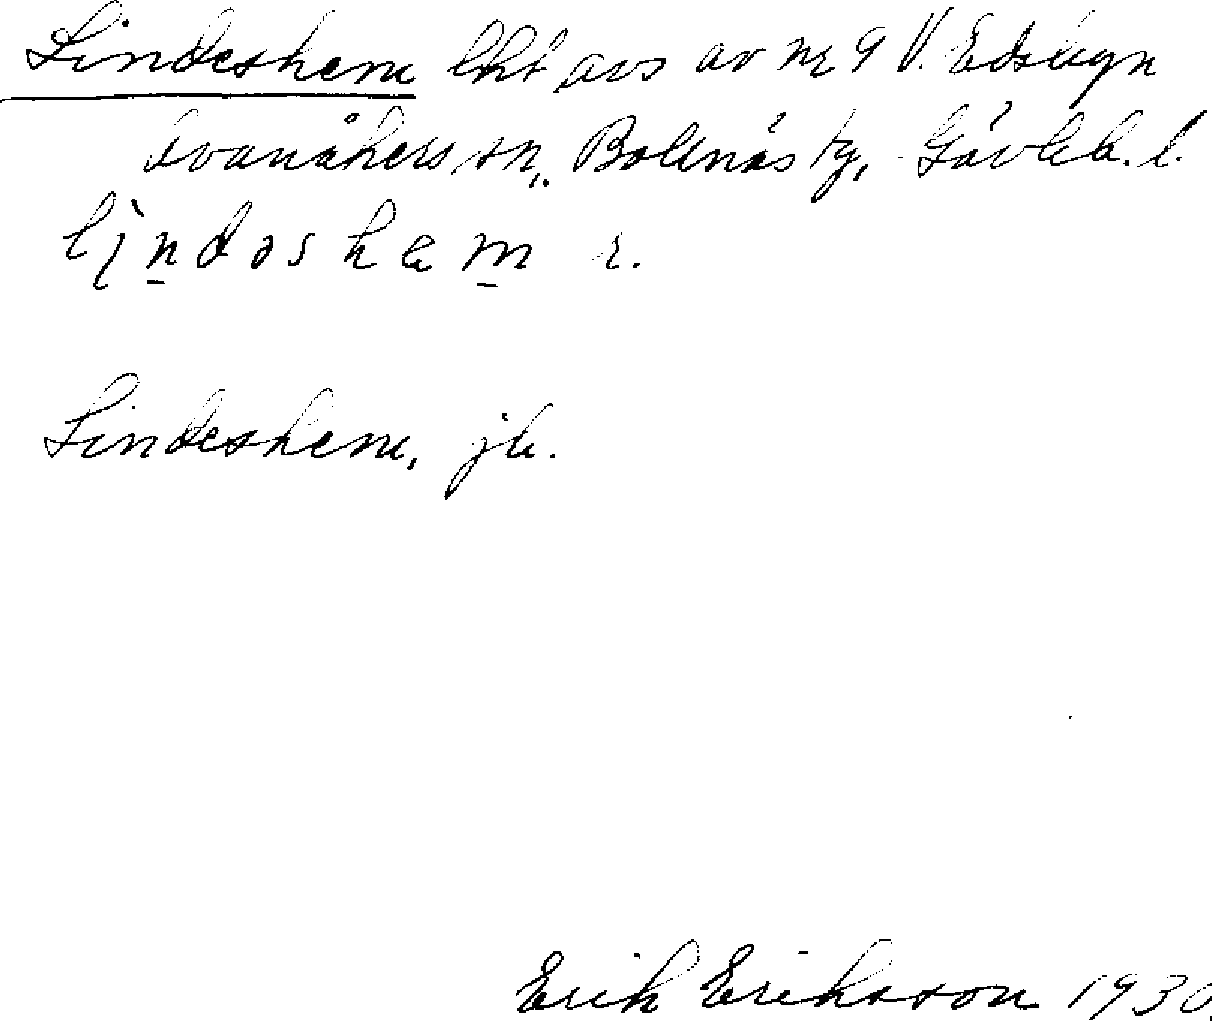 Lindeshem lht avs av nr 9 V. Edsbyn
Svanåkers sn, Bollnäs tg, Gävleb. l.
lindəshem r.
Lindeshem, jb.
Erik Eriksson 1930.